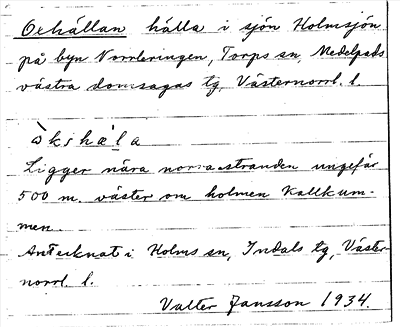 Oxhällan hälla i sjön Holmsjön
på byn Norrleringen, Torps sn, Medelpads
västra domsagas tg, Västernorrl. l.
ò k s h æ l a
Ligger nära norra stranden ungefär
500 m. väster om holmen Kallkum-
men.
Antecknat i Holms sn, Indals tg, Väster-
norrl. l.
Valter Jansson 1934.